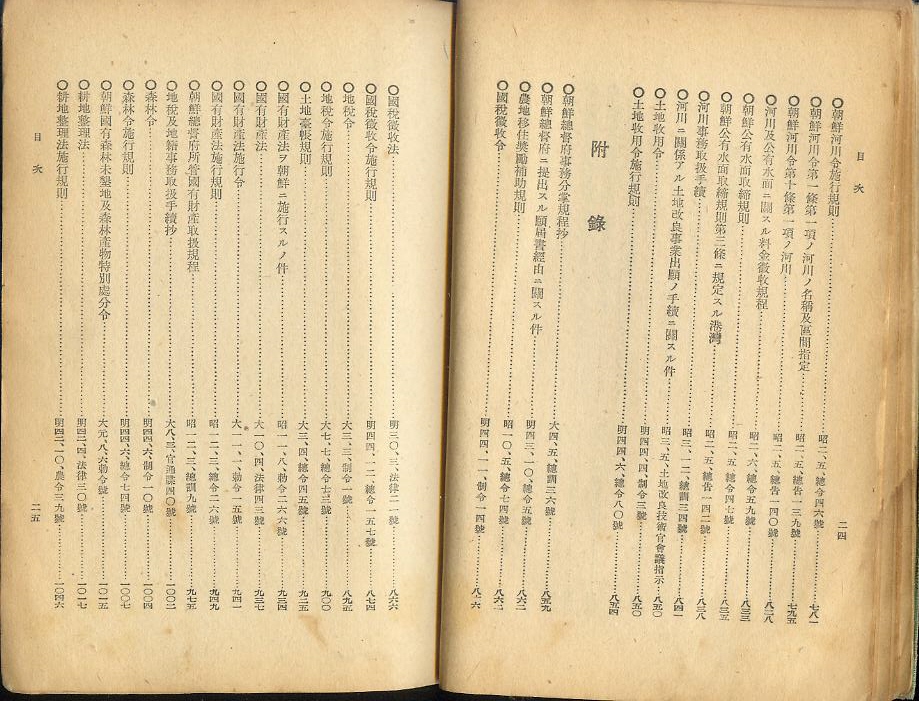 目次
二四
○朝鮮河川令施行規則……昭二、五、總令四六號……七八一
○朝鮮河川令第一條第一項ノ河川ノ名稱及區間指定……昭二、五、總告一三九號……七九五
○朝鮮河川令第十條第一項ノ河川……昭二、五、總告一四〇號……八二八
○河川及公有水面ニ關スル料金徵收規程……昭二、六、總令五九號……八三三
○朝鮮公有水面取締規則……昭二、五、總令六〇號……八三五
○朝鮮公有水面取締規則第三條ニ規定スル港灣……昭二、五、總告一四二號……八三八
○河川事務取扱手續……昭三、一二、總訓三四號……八四一
○河川ニ關係アル土地改良事業出願ノ手續ニ關スル件……昭三、五、土地改良技術官會議指示……八五〇
○土地收用令……明四四、四制令三號……八五〇
○土地收用令施行規則……明四四、六、總令八〇號……八五四
附錄
○朝鮮總督府事務分掌規程抄……大四、五、總訓三六號……八五九
○朝鮮總督府ニ提出スル願屆書經由ニ關スル件……明四三、一〇、總令五號……八六二
○農地移住奬勵補助規則……昭一〇、五、總令七四號……八六二
○國稅徵收令……明四四、一一、制令一四號……八六六
○國稅徵收法……明三〇、三、法律二一號……八六六
○國稅徵收令施行規則……明四四、一二、總令一五七號……八七四
○地稅令……大三、三、制令一號……八九五
○地稅令施行規則……大七、七、總令七三號……九〇〇
○土地臺帳規則……大三、四、總令四五號……九二五
○國有財產法ヲ朝鮮ニ施行スルノ件……昭一一、八、勅令二六六號……九三四
○國有財產法……大一〇、四、法律四三號……九三七
○國有財產法施行令……大一一、一、勅令一五號……九四一
○國有財產法施行規則……昭一二、三、總令二六號……九四九
○朝鮮總督府所管國有財產取扱規程……昭一二、三、總訓九號……九七五
○地稅及地籍事務取扱手續抄……大八、三、官通牒四〇號……一〇〇二
○森林令……明四四、六、制令一〇號……一〇〇四
○森林令施行規則……明四四、六、總令七四號……一〇〇七
○朝鮮國有森林未墾地及森林產物特別處分令……大元、八、六勅令號……一〇一五
○耕地整理法……明四二、四、法律三〇號……一〇一七
○耕地整理法施行規則……明四二、一〇、農令三九號……一〇四六
目次
二五